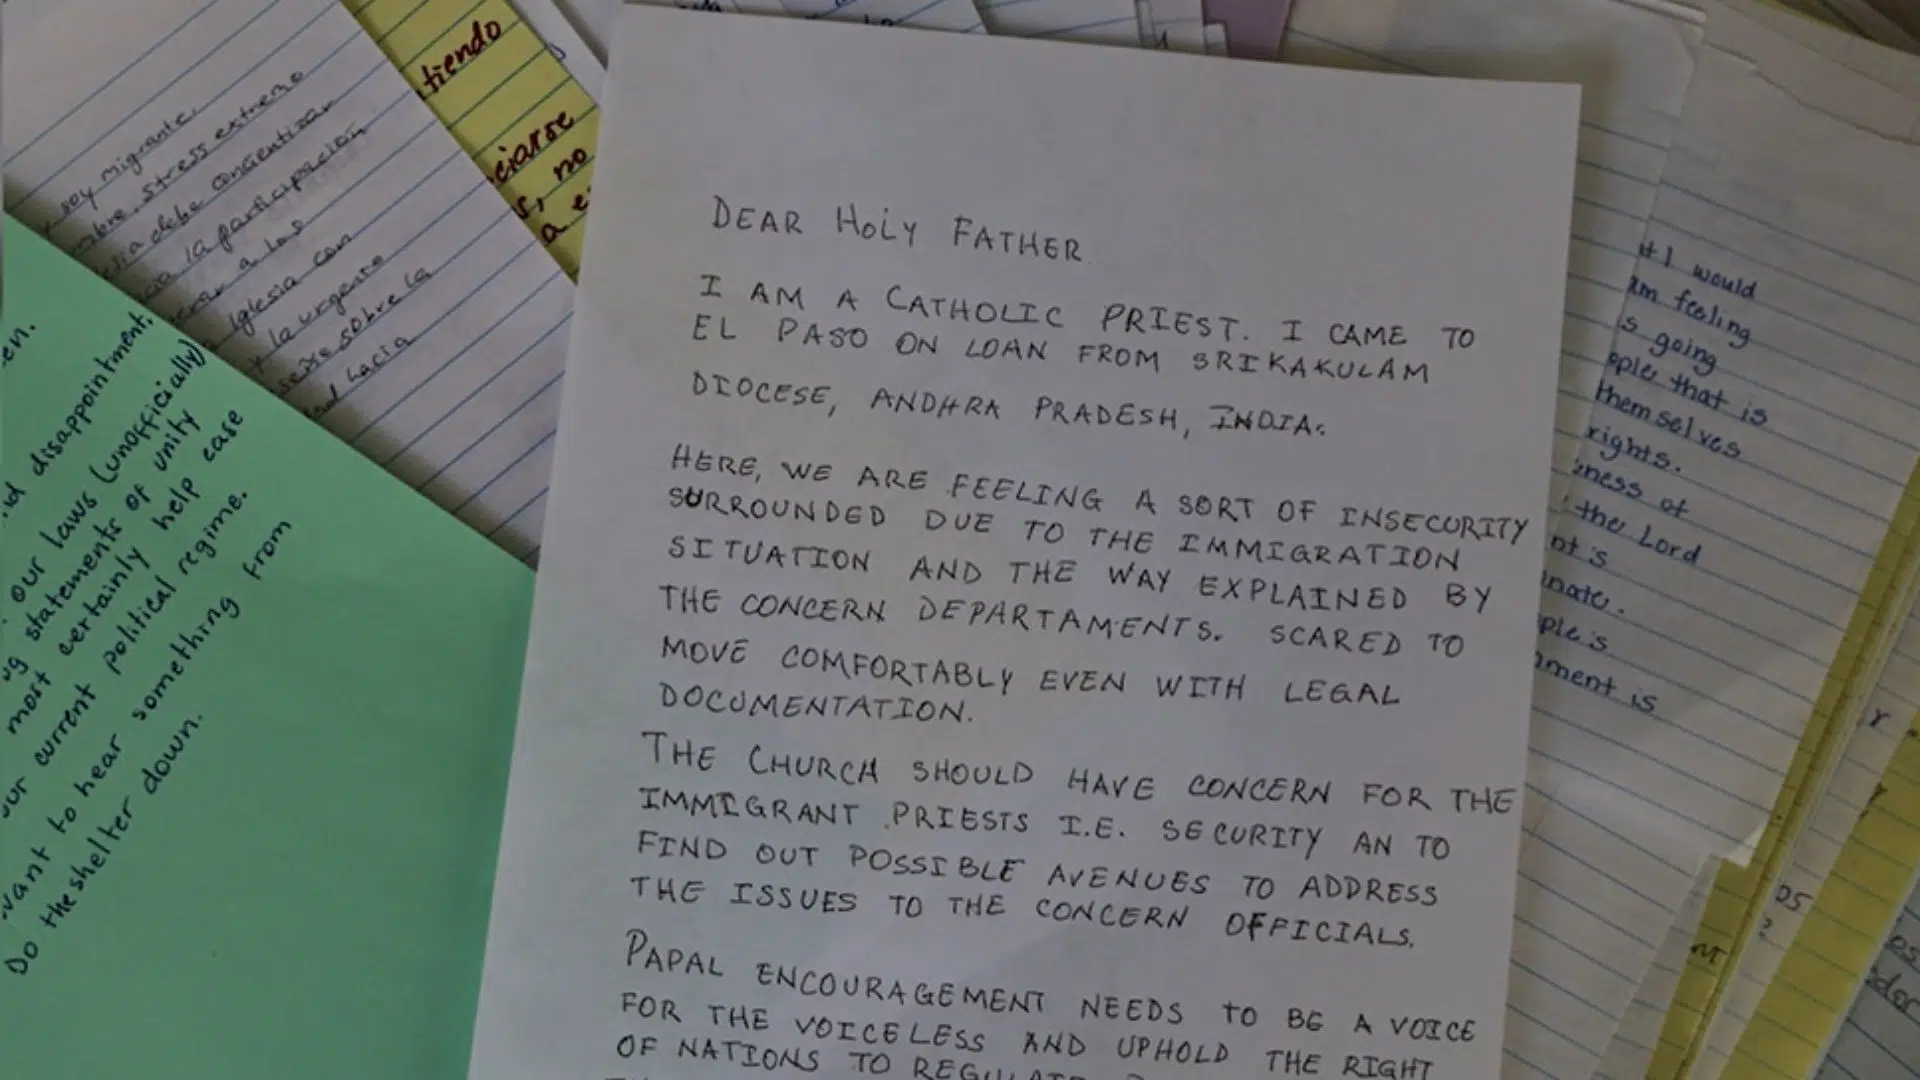 DEAR HOLY FATHER
I AM A CATHOLIC PRIEST. I CAME TO
EL PASO ON LOAN FROM SRIKAKULAM
DIOCESE, ANDHRA PRADESH, INDIA.
HERE, WE ARE FEELING A SORT OF INSECURITY
SURROUNDED DUE TO THE IMMIGRATION
SITUATION AND THE WAY EXPLAINED BY
THE CONCERN DEPARTAMENTS. SCARED TO
MOVE COMFORTABLY EVEN WITH LEGAL
DOCUMENTATION.
THE CHURCH SHOULD HAVE CONCERN FOR THE
IMMIGRANT PRIESTS I.E. SECURITY AN TO
FIND OUT POSSIBLE AVENUES TO ADDRESS
THE ISSUES TO THE CONCERN OFFICIALS.
PAPAL ENCOURAGEMENT NEEDS TO BE A VOICE
FOR THE VOICELESS AND UPHOLD THE RIGHT
OF NATIONS TO REGULATE
soy migrante.
stress extremo
debe concientizar
la participación
a los
Iglesia con
y la urgente
sobre la
hacia
tiendo
ciarse
s, no
a e
en.
disappointment.
our laws (unofficially)
statements of unity
most certainly help ease
our current political regime.
want to hear something from
Do the shelter down.
I would
am feeling
is going
ople that is
themselves
rights.
iness of
the Lord
nt is
inate.
ple is
nment is
os
?